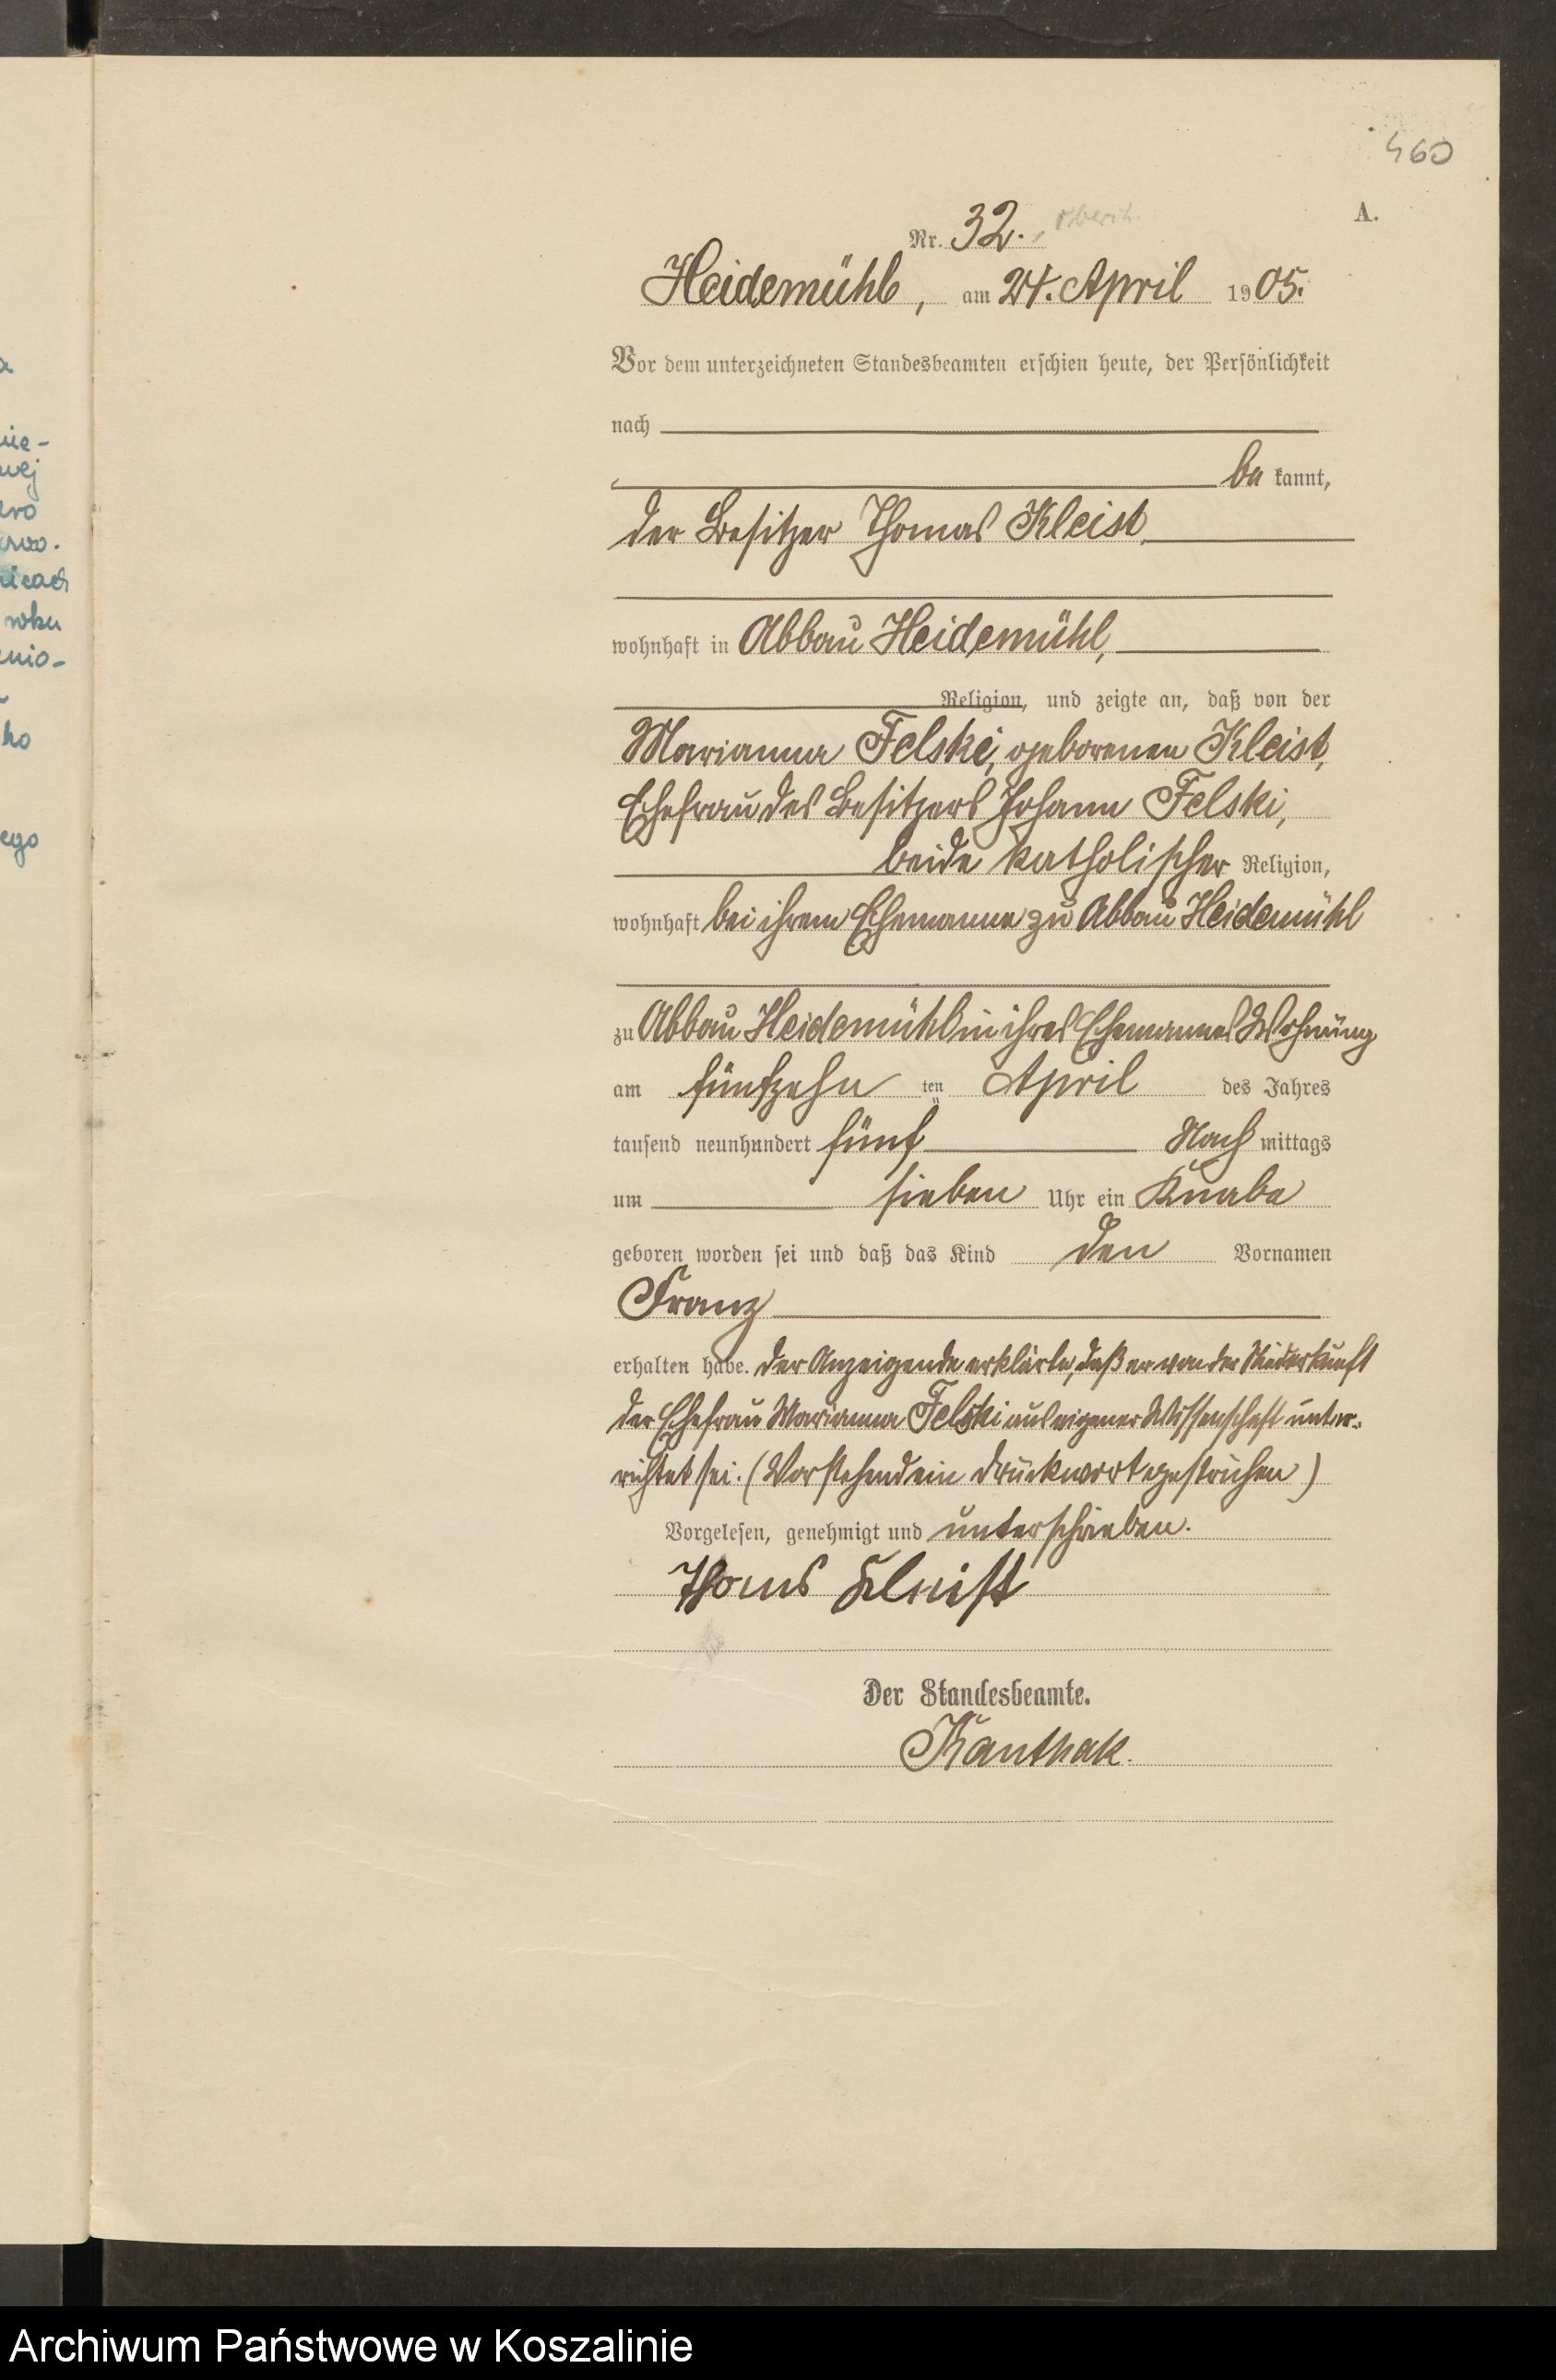 460
A.
Nr. 32.
Heidemühl, am 24. April 1905.
Vor dem unterzeichneten Standesbeamten erschien heute, der Persönlichkeit
nach
be kannt,
der Besitzer Thomas Kleist,
wohnhaft in Abbau Heidemühl,
Religion, und zeigte an, daß von der
Marianna Felski, geborenen Kleist,
Ehefrau des Besitzers Johann Felski,
beide katholischer Religion,
wohnhaft bei ihrem Ehemanne zu Abbau Heidemühl
zu Abbau Heidemühl in ihres Ehemannes Wohnung
am fünfzehn ten April des Jahres
tausend neunhundert fünf Nach mittags
um sieben Uhr ein Knabe
geboren worden sei und daß das Kind den Vornamen
Franz
erhalten habe. Der Anzeigende erklärte, daß er von der Niederkunft
der Ehefrau Marianna Felski aus eigener Wissenschaft unter-
richtet sei. (Vorstehend ein Druckwort gestrichen)
Vorgelesen, genehmigt und unterschrieben.
Thoms Kleist
Der Standesbeamte.
Kanthak.
ho
ego
Archiwum Państwowe w Koszalinie